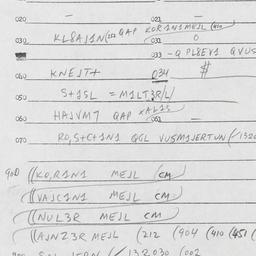 020 — 021 —
030 KL8AJ1N(212 QAP KOR1N1MEJL (410
031 0
033 -Q PL8EV1 QVUS
040 KNEJT+ 034 #
050 S+1SL = M1LT3R/L/
060 HAJVM7 QAP KAL1S 061
070 RO,S+C+1N1 QGL VUSM1JERTUN(/1320
900 ((KO,R1N1 MEJL (CM)
((VAJC1N1 MEJL CM)
((NUL3R MEJL CM)
((AJNZ3R MEJL (212 (904 (410 (451 (
132030 (002